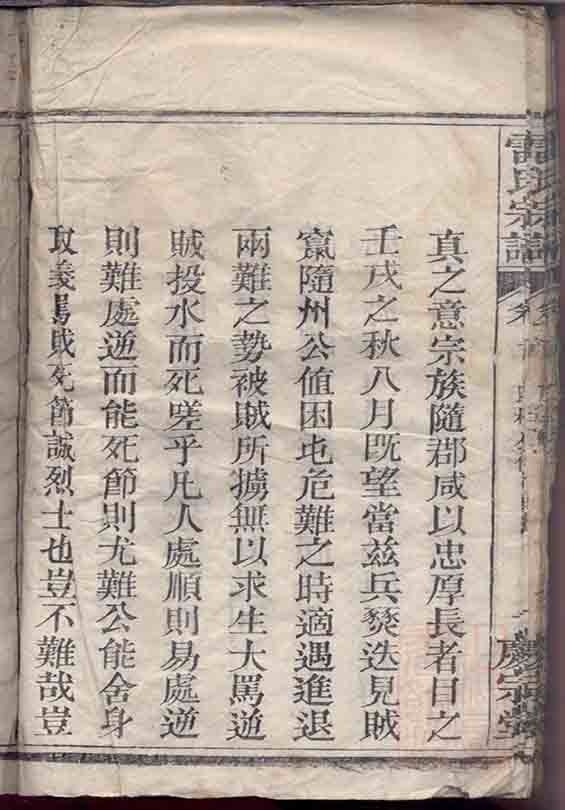 真之意宗族隨郡咸以忠厚長者目之
壬戌之秋八月既望當兹兵燹迭見賊
竄隨州公值困屯危難之時適遇進退
兩難之勢被賊所擄無以求生大罵逆
賊投水而死嗟乎凡人處順則易處逆
則難處逆而能死節則尤難公能舍身
取義罵賊死節誠烈士也豈不難哉豈
氏宗譜